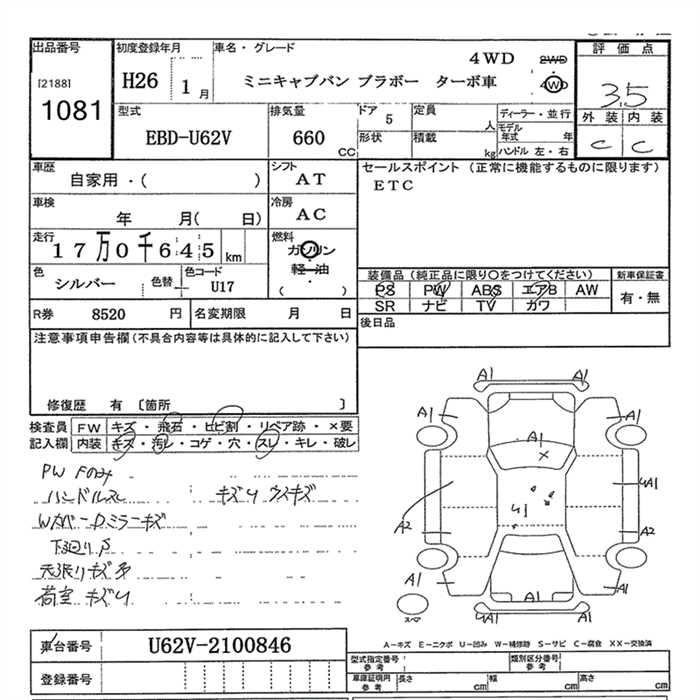 出品番号
[2188]
1081
初度登録年月
H26 1月
車名・グレード
4WD 2WD
ミニキャブバン ブラボー ターボ車 4WD
評価点
3.5
外装 内装
C C
型式
EBD-U62V
排気量
660 CC
ドア 5
定員 人
形状
積載 kg
ディーラー・並行
モデル年式 年
ハンドル 左・右
車歴
自家用・( )
シフト
AT
セールスポイント (正常に機能するものに限ります)
ETC
車検
年 月( 日)
冷房
AC
走行
17万0千645 km
燃料
ガソリン
軽油
( )
色
シルバー
色替
色コード
U17
装備品 (純正品に限り○をつけてください)
PS PW ABS エアB AW
SR ナビ TV カワ
新車保証書
有・無
R券 8520 円
名変期限 月 日
後日品
注意事項申告欄 (不具合内容等は具体的に記入して下さい)
修復歴 有 〔箇所 〕
検査員記入欄
FW キズ・飛石・ヒビ割・リペア跡・×要
内装 キズ・汚レ・コゲ・穴・スレ・キレ・破レ
PW Fのみ
ハンドルスレ キズU ウスキズ
Wカバー・Dミラーキズ
下廻りS
天張りキズ
荷室 キズU
A1 A1
A1 A1
A1
×
U1
UA1
A2 A2
A1 A1
A1
UA1 A1
スペア
A-キズ E-エクボ U-凹み W-補修跡 S-サビ C-腐食 XX-交換済
車台番号 U62V-2100846
登録番号
型式指定番号 参考
類別区分番号 参考
車庫証明用 参考
長さ cm
幅 cm
高さ cm